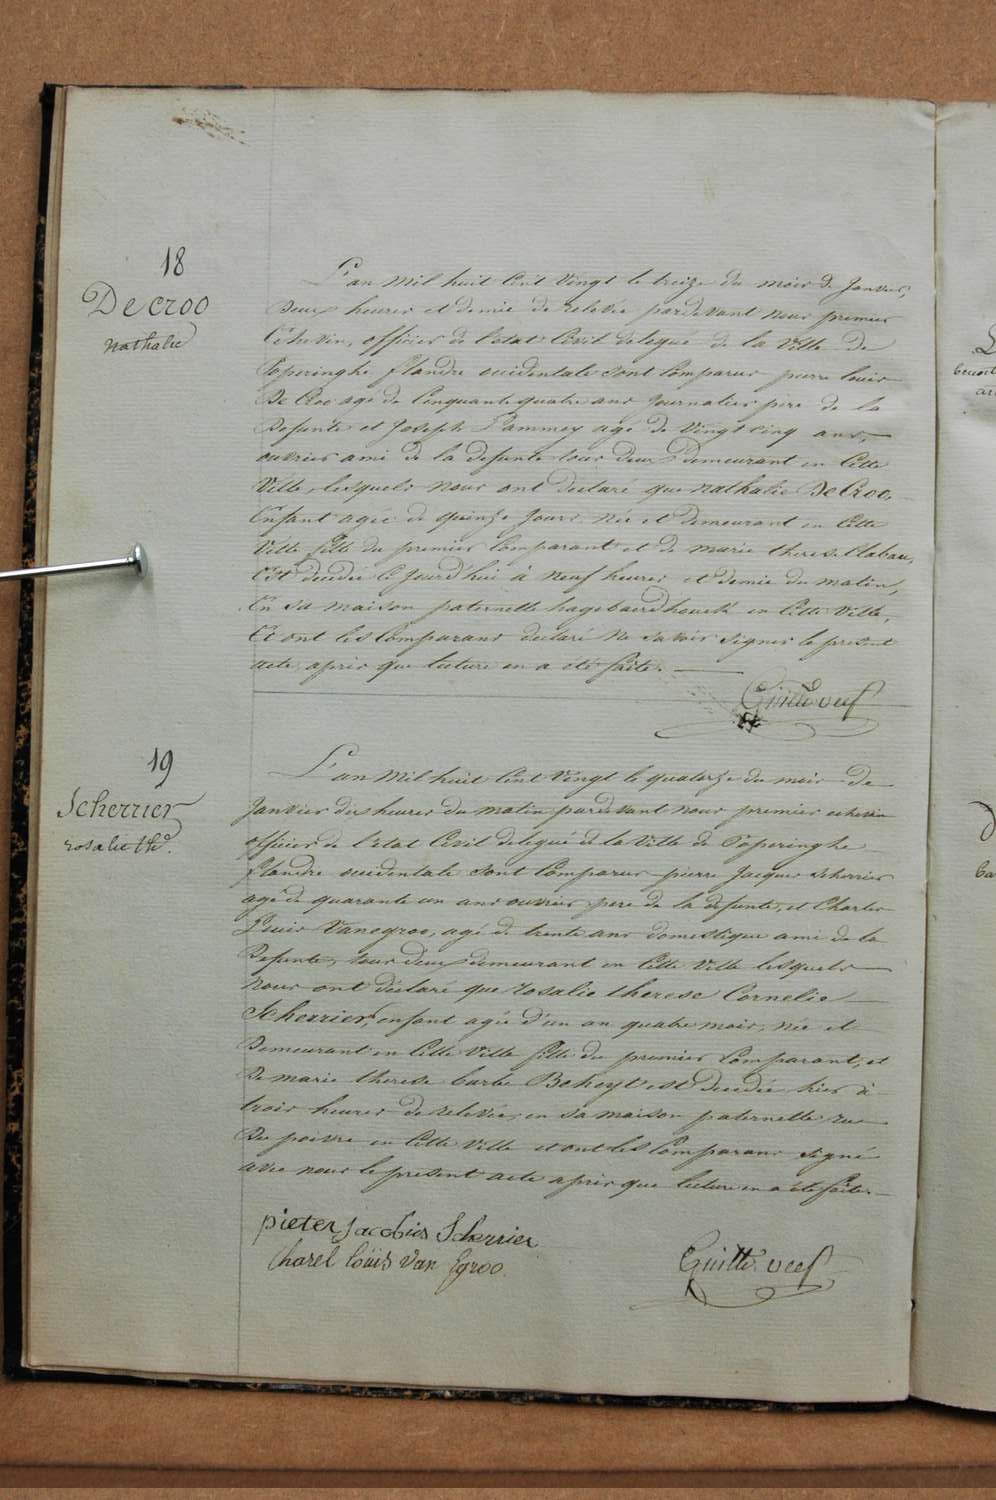 18
De croo
nathalie
L'an mil huit cent vingt le treize du mois de Janvier,
deux heures et demie de relevée pardevant nous premier
Echevin, officier de l'etat civil delegué de la ville de
Poperinghe flandre occidentale sont comparus pierre louis
De Croo agé de cinquante quatre ans journalier père de la
defunte et Joseph agé de vingt cinq ans,
ouvrier ami de la defunte tous deux demeurant en cette
Ville, lesquels nous ont déclaré que nathalie De Croo,
Enfant agée de quinze jours née et demeurant en cette
Ville fille du premier comparant et de marie therese Clabau,
Est décédée ce jourd'hui à neuf heures et demie du matin,
En sa maison paternelle en cette Ville,
Et ont les comparans declaré ne savoir signer le present
acte, après que lecture en a été faite.
19
Scherrier
rosalie thé.
L'an mil huit cent vingt le quatorze du mois de
Janvier dix heures du matin pardevant nous premier echevin
officier de l'etat civil delegué de la ville de Poperinghe
flandre occidentale sont comparus pierre Jacques Scherrier
agé de quarante un ans ouvrier pere de la defunte, et Charles
Louis Vanegroo, agé de trente ans domestique ami de la
Defunte, tous deux demeurant en cette Ville lesquels
nous ont déclaré que rosalie therese Cornelie
Scherrier, enfant agée d'un an quatre mois, née et
Demeurant en cette Ville fille du premier comparant, et
De marie therese barbe Boheyt est decedée hier à
trois heures de relevée, en sa maison paternelle rue
Du poivre en cette ville et ont les comparans signé
avec nous le present acte après que lecture en a été faite.
pieter jacobus Scherrier
Charel louis van Egroo.